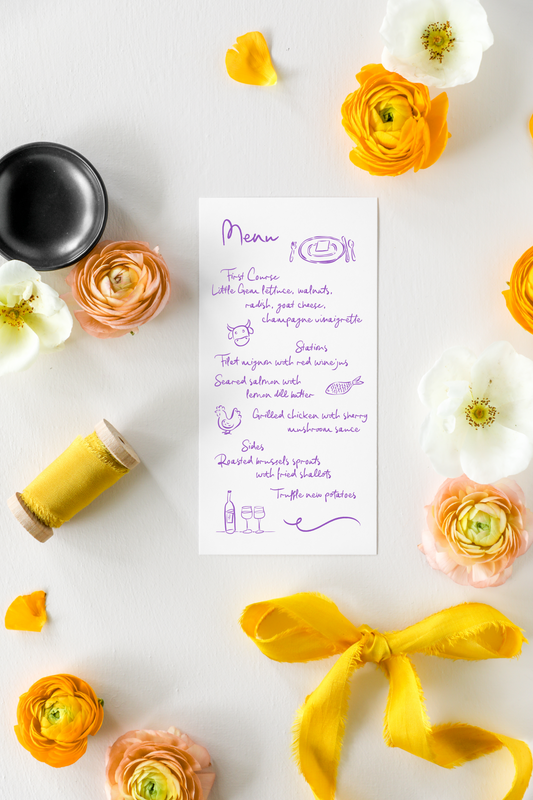 Menu
First Course
Little Gem lettuce, walnuts,
radish, goat cheese,
champagne vinaigrette
Stations
Filet mignon with red wine jus
Seared salmon with
lemon dill butter
Grilled chicken with sherry
mushroom sauce
Sides
Roasted brussels sprouts
with fried shallots
Truffle new potatoes